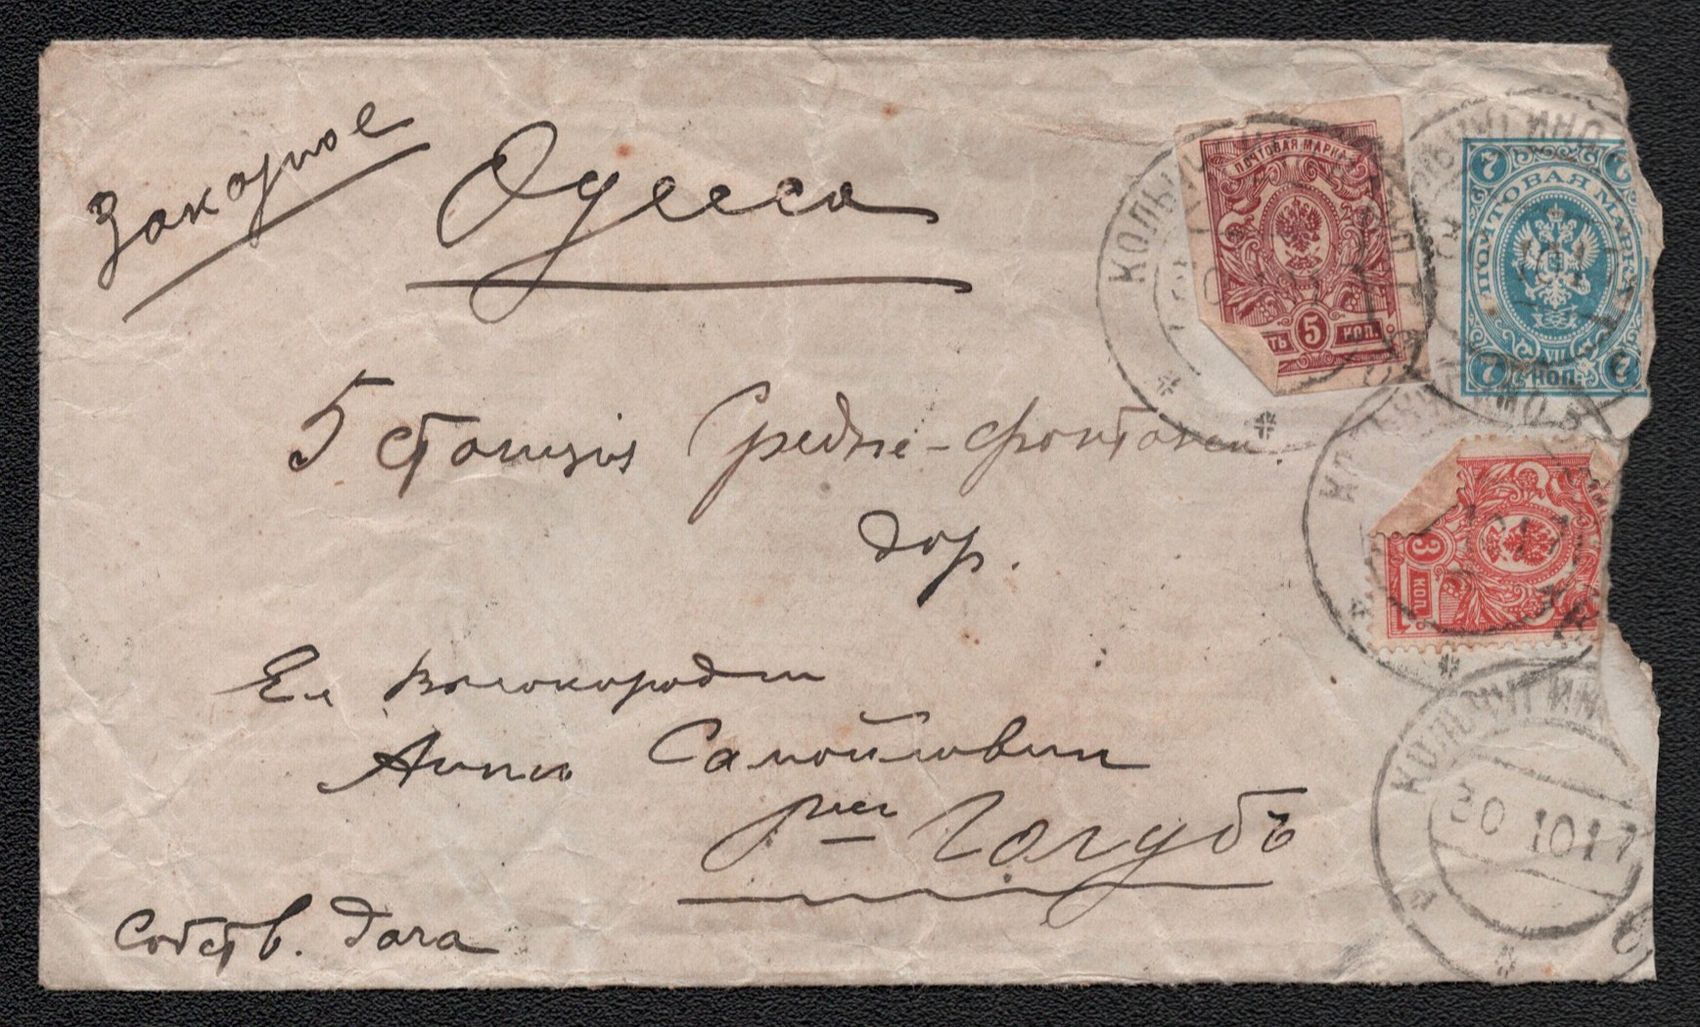 Заказное
Одесса
5 станція Средне-фонтанск.
дор.
Ея Высокород
Анны Самойловны
Голубъ
Собств. дача
ПОЧТОВАЯ МАРКА
5 КОП.
7 7
ПОЧТОВАЯ МАРКА
7 КОП. 7
3
КОП.
КОЛЬЧУГИНО
КОЛЬЧУГИНО
КОЛЬЧУГИН
30 10 17